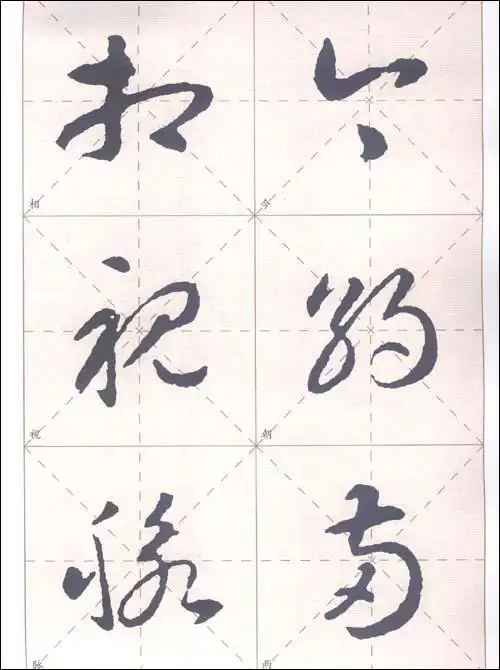 今朝两
相视脉
今
朝
两
相
视
脉